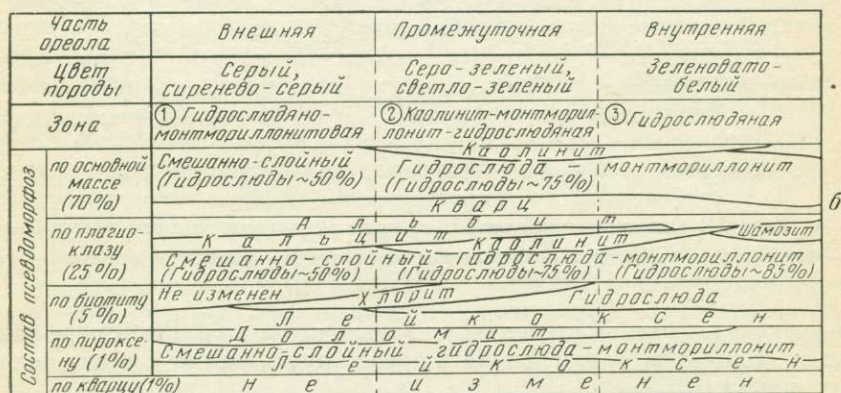 Часть ореола Внешняя Промежуточная Внутренняя
Цвет породы Серый, сиренево-серый Серо-зеленый, светло-зеленый Зеленовато-белый
Зона ① Гидрослюдяно-монтмориллонитовая ② Каолинит-монтмориллонит-гидрослюдяная ③ Гидрослюдяная
Состав псевдоморфоз
по основной массе (70%)
Каолинит
Смешанно-слойный Гидрослюда — монтмориллонит
(Гидрослюды~50%) (Гидрослюды~75%)
Кварц
б
по плагиоклазу (25%)
Альбит
Шамозит
Кальцит Каолинит
Смешанно-слойный гидрослюда-монтмориллонит
(Гидрослюды~50%) (Гидрослюды~75%) (Гидрослюды~85%)
по биотиту (5%)
Не изменен Хлорит Гидрослюда
Лейкоксен
по пироксену (1%)
Доломит
Смешанно-слойный гидрослюда-монтмориллонит
Лейкоксен
по кварцу (1%) Не изменен